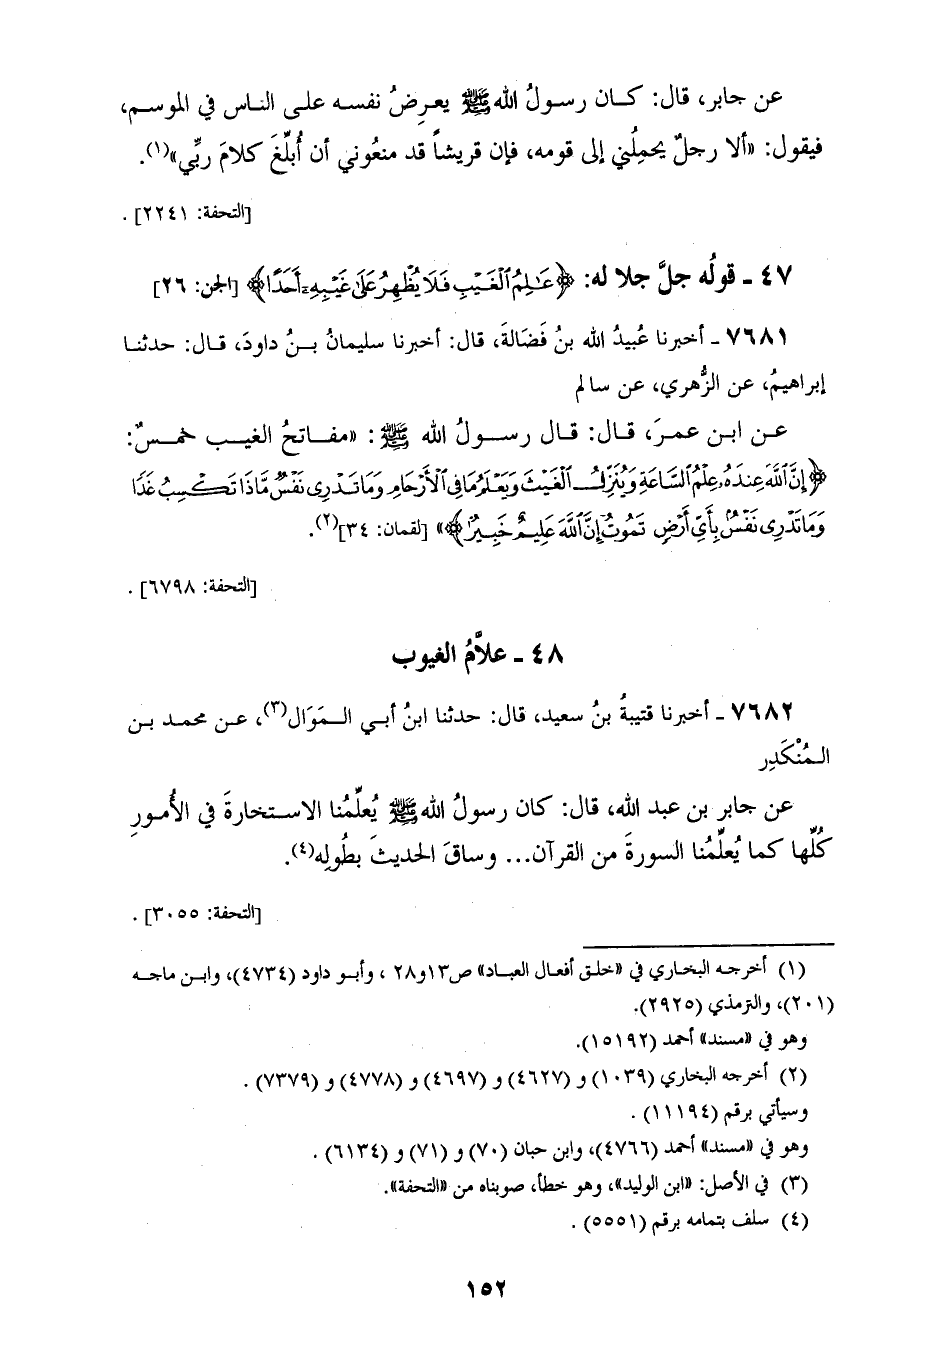 عن جابر، قال: كان رسولُ الله ﷺ يعرِضُ نفسه على الناس في الموسم،
فيقول: «ألا رجلٌ يحمِلُني إلى قومه، فإن قريشاً قد منعُوني أن أُبلِّغَ كلامَ ربِّي»(١).
[التحفة: ٢٢٤١] .
٤٧ ـ قولُه جلَّ جلا له: ﴿عَٰلِمُ ٱلْغَيْبِ فَلَا يُظْهِرُ عَلَىٰ غَيْبِهِۦٓ أَحَدًا﴾ [الجن: ٢٦]
٧٦٨١ ـ أخبرنا عُبيدُ الله بنُ فَضَالةَ، قال: أخبرنا سليمانُ بنُ داودَ، قال: حدثنا
إبراهيمُ، عن الزُّهري، عن سالم
عن ابن عمرَ، قال: قال رسولُ الله ﷺ : «مفاتحُ الغيب خمسٌ:
﴿إِنَّ ٱللَّهَ عِندَهُۥ عِلْمُ ٱلسَّاعَةِ وَيُنَزِّلُ ٱلْغَيْثَ وَيَعْلَمُ مَا فِى ٱلْأَرْحَامِ وَمَا تَدْرِى نَفْسٌ مَّاذَا تَكْسِبُ غَدًا
وَمَا تَدْرِى نَفْسٌۢ بِأَىِّ أَرْضٍ تَمُوتُ إِنَّ ٱللَّهَ عَلِيمٌ خَبِيرٌۢ﴾» [لقمان: ٣٤](٢).
[التحفة: ٦٧٩٨] .
٤٨ ـ علاَّمُ الغيوب
٧٦٨٢ ـ أخبرنا قتيبةُ بنُ سعيد، قال: حدثنا ابنُ أبي المَوَال(٣)، عن محمد بن
المُنْكَدِر
عن جابر بن عبد الله، قال: كان رسولُ الله ﷺ يُعلِّمُنا الاستخارةَ في الأُمورِ
كُلِّها كما يُعلِّمُنا السورةَ من القرآن... وساقَ الحديثَ بطُولِه(٤).
[التحفة: ٣٠٥٥] .
(١) أخرجه البخاري في «خلق أفعال العباد» ص١٣و٢٨ ، وأبو داود (٤٧٣٤)، وابن ماجه
(٢٠١)، والترمذي (٢٩٢٥).
وهو في «مسند» أحمد (١٥١٩٢).
(٢) أخرجه البخاري (١٠٣٩) و (٤٦٢٧) و (٤٦٩٧) و (٤٧٧٨) و (٧٣٧٩) .
وسيأتي برقم (١١١٩٤) .
وهو في «مسند» أحمد (٤٧٦٦)، وابن حبان (٧٠) و (٧١) و (٦١٣٤) .
(٣) في الأصل: «ابن الوليد»، وهو خطأ، صوبناه من «التحفة».
(٤) سلف بتمامه برقم (٥٥٥١) .
١٥٢